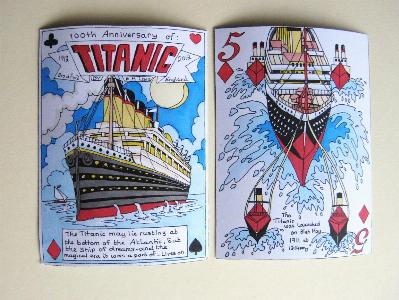 100th Anniversary of:
TITANIC
1912
2012
England
The Titanic may lie rusting at
the bottom of the Atlantic, but
the ship of dreams - and the
magical era is was a part of... Lives on
5
The
Titanic
was launched
on 31st May
1911 at
12:14pm
5